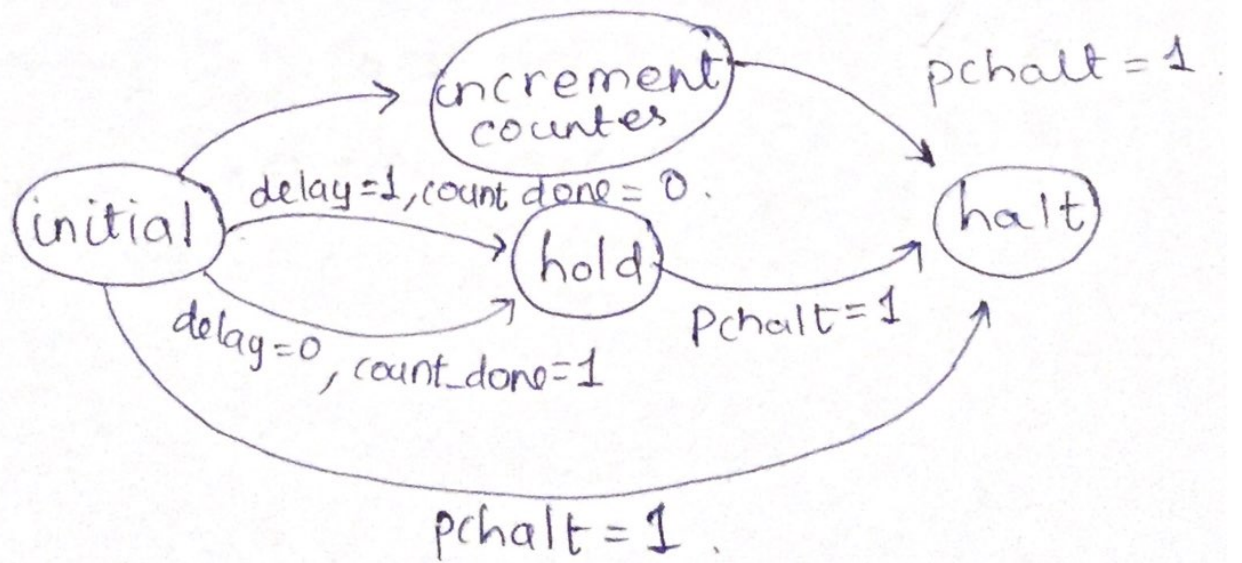 increment
counter
pchalt = 1.
initial
delay=1, count done = 0.
hold
halt
delay=0, count_done=1
Pchalt = 1
pchalt = 1.